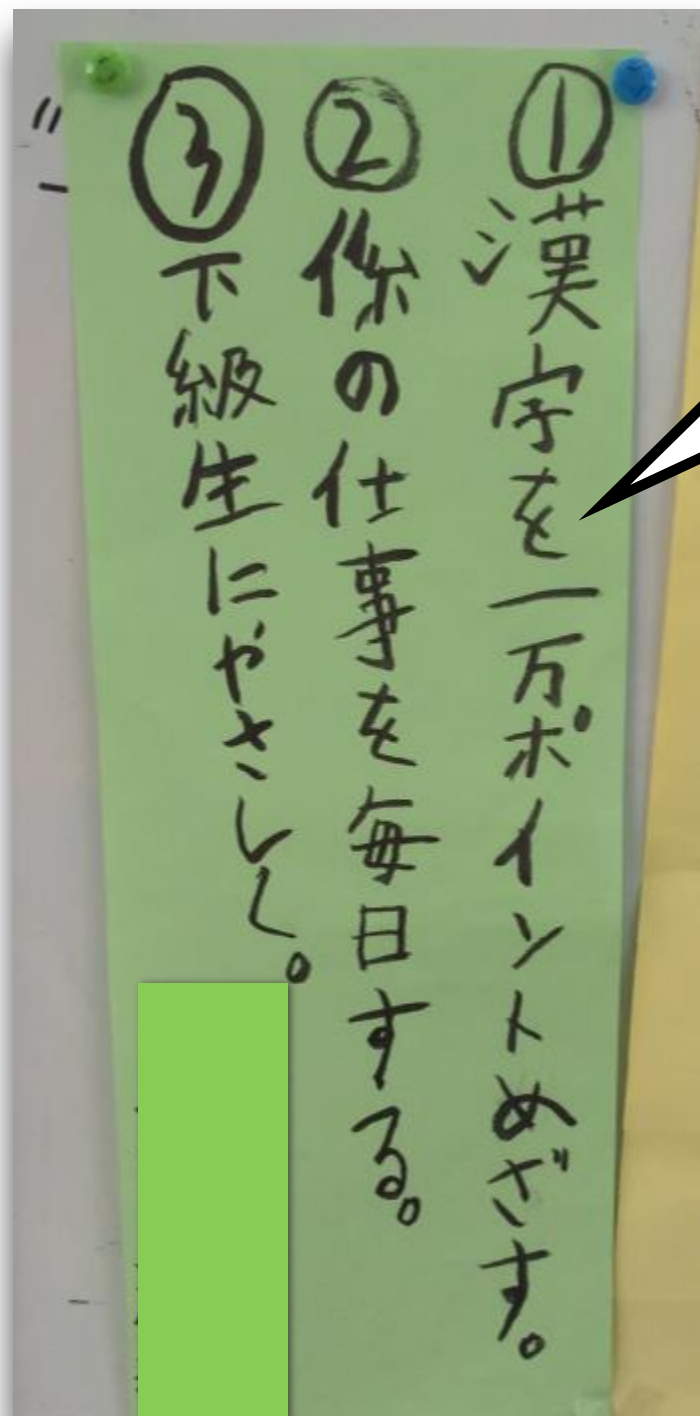 ①漢字を一万ポイントめざす。
②係の仕事を毎日する。
③下級生にやさしく。